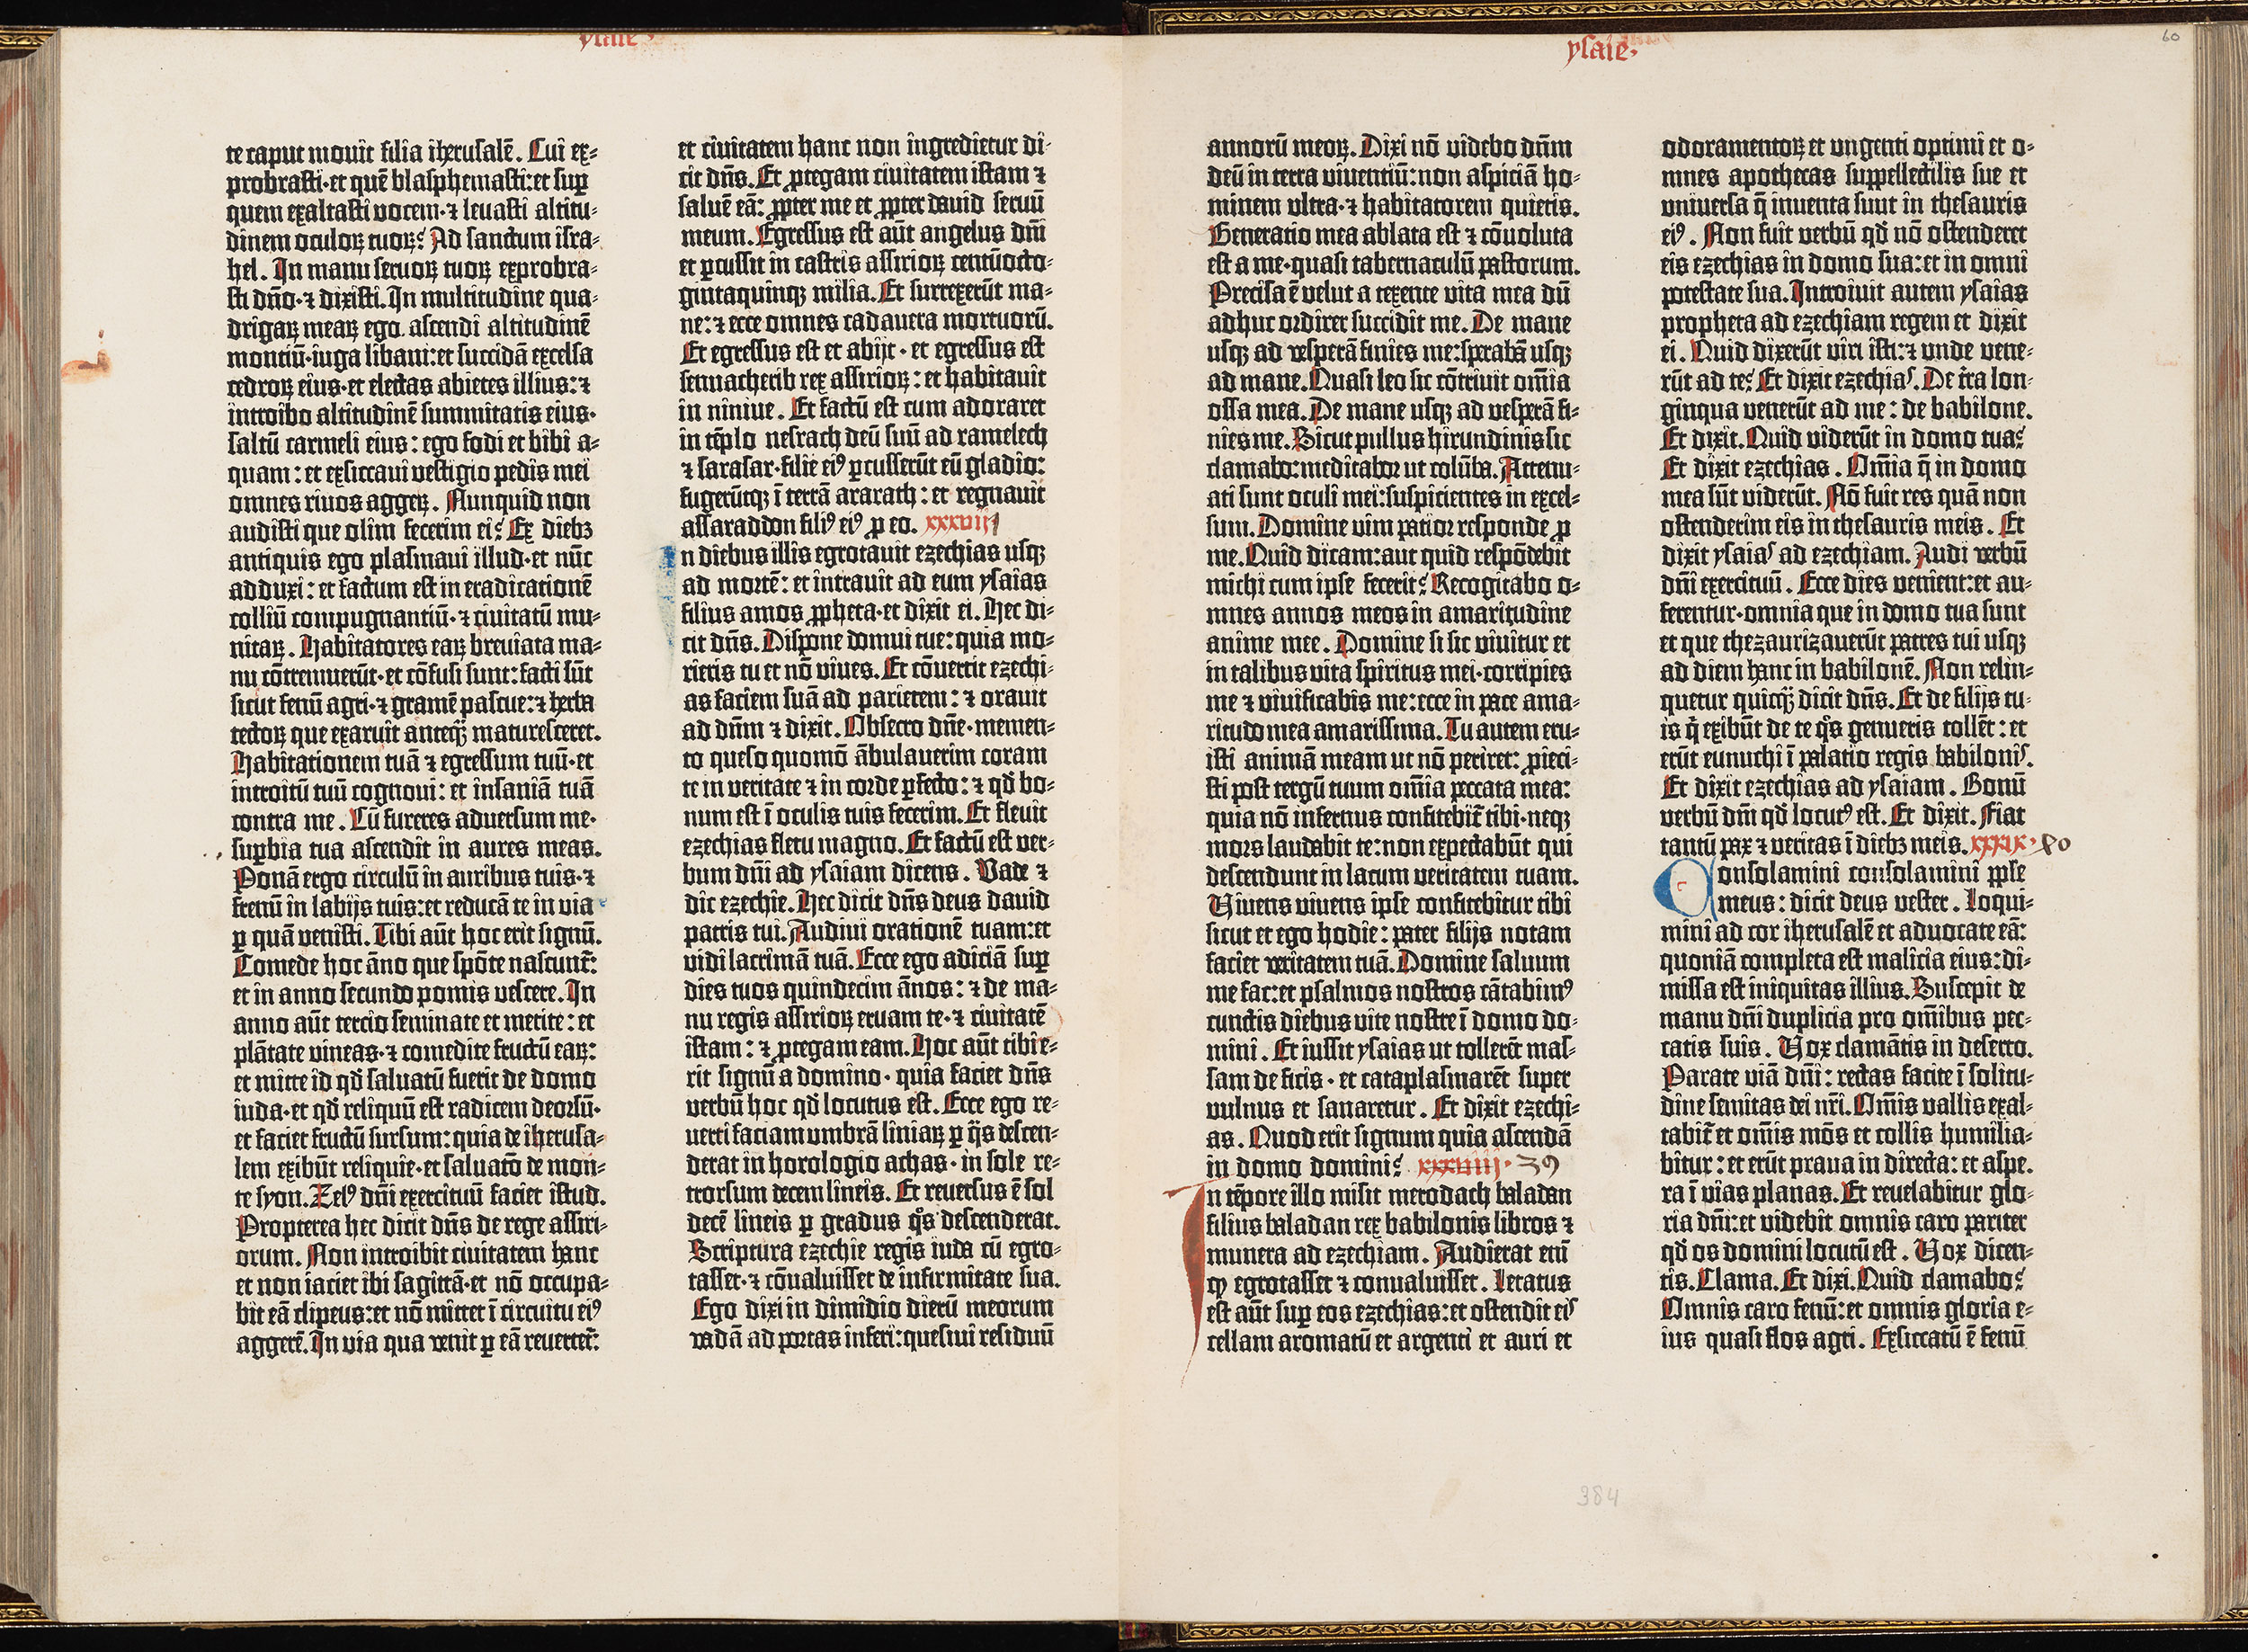 ysaie.
te caput mouit filia iherusalē. Cui ex-
probrasti·et quē blasphemasti:et sup
quem exaltasti vocem·⁊ leuasti altitu-
dinem oculoꝝ tuoꝝ? Ad sanctum isra-
hel. In manu seruoꝝ tuoꝝ exprobra-
sti dn̄o·⁊ dixisti. In multitudine qua-
drigaꝝ meaꝝ ego ascendi altitudinē
montiū·iuga libani:et succidā excelsa
cedroꝝ eius·et electas abietes illius:⁊
introibo altitudinē summitatis eius·
saltū carmeli eius: ego fodi et bibi a-
quam: et exsiccaui vestigio pedis mei
omnes riuos aggeꝝ. Nunquid non
audisti que olim fecerim ei? Ex diebꝫ
antiquis ego plasmaui illud·et nūc
adduxi: et factum est in eradicationē
colliū compugnantiū·⁊ ciuitatū mu-
nitaꝝ. Habitatores eaꝝ breuiata ma-
nu cōtremuerūt·et cōfusi sunt:facti sūt
sicut fenū agri·⁊ gramē pascue:⁊ herba
tectoꝝ que exaruit anteqꝫ maturesceret.
Habitationem tuā ⁊ egressum tuū·et
introitū tuū cognoui: et insaniā tuā
contra me. Cū fureres aduersum me·
suꝑbia tua ascendit in aures meas.
Ponā ergo circulū in auribus tuis·⁊
frenū in labijs tuis:et reducā te in via
ꝑ quā venisti. Tibi aūt hoc erit signū.
Comede hoc āno que spōte nascunt̄:
et in anno secundo pomis vescere. In
anno aūt tercio seminate et metite: et
plātate vineas·⁊ comedite fructū eaꝝ:
et mitte id qd̄ saluatū fuerit de domo
iuda·et qd̄ reliquū est radicem deorsū·
et faciet fructū sursum:quia de iherusa-
lem exibūt reliquie·et saluatō de mon-
te syon. Zelꝰ dn̄i exercituū faciet istud.
Propterea hec dicit dn̄s de rege assiri-
orum. Non introibit ciuitatem hanc
et non iaciet ibi sagittā·et nō occupa-
bit eā clipeus:et nō mittet ī circuitu eiꝰ
aggerē. In via qua venit ꝑ eā reuertet̄:
et ciuitatem hanc non ingredietur di-
cit dn̄s. Et ꝓtegam ciuitatem istam ⁊
saluē eā: ꝓpter me et ꝓpter dauid seruū
meum. Egressus est aūt angelus dn̄i
et ꝑcussit in castris assirioꝝ centūocto-
gintaquinqꝫ milia. Et surrexerūt ma-
ne:⁊ ecce omnes cadauera mortuorū.
Et egressus est et abijt·et egressus est
sennacherib rex assirioꝝ: et habitauit
in niniue. Et factū est cum adoraret
in tēplo nesrach deū suū ad ramelech
⁊ sarasar·filie eiꝰ ꝑcusserūt eū gladio:
fugerūtqꝫ ī terrā ararath: et regnauit
assaraddon filiꝰ eiꝰ ꝓ eo. xxxviii
n diebus illis egrotauit ezechias usqꝫ
ad mortē: et intrauit ad eum ysaias
filius amos ꝓpheta·et dixit ei. Hec di-
cit dn̄s. Dispone domui tue:quia mo-
rieris tu et nō viues. Et cōuertit ezechi-
as faciem suā ad parietem: ⁊ orauit
ad dn̄m ⁊ dixit. Obsecro dn̄e·memen-
to queso quomō ābulauerim coram
te in veritate ⁊ in corde ꝑfecto: ⁊ qd̄ bo-
num est ī oculis tuis fecerim. Et fleuit
ezechias fletu magno. Et factū est ver-
bum dn̄i ad ysaiam dicens. Vade ⁊
dic ezechie. Hec dicit dn̄s deus dauid
patris tui. Audiui orationē tuam:et
vidi lacrimā tuā. Ecce ego adiciā suꝑ
dies tuos quindecim ānos: ⁊ de ma-
nu regis assirioꝝ eruam te·⁊ ciuitatē
istam: ⁊ ꝓtegam eam. Hoc aūt tibi e-
rit signū a domino·quia faciet dn̄s
verbū hoc qd̄ locutus est. Ecce ego re-
uerti faciam umbrā liniaꝝ ꝑ q̄s descen-
derat in horologio achas·in sole re-
trorsum decem lineis. Et reuersus ē sol
decē lineis ꝑ gradus qͦs descenderat.
Scriptura ezechie regis iuda cū egro-
tasset·⁊ cōualuisset de infirmitate sua.
Ego dixi in dimidio dierū meorum
vadā ad portas inferi:quesiui residuū
ysaie.
60
annorū meoꝝ. Dixi nō videbo dn̄m
deū in terra viuentiū:non aspiciā ho-
minem vltra·⁊ habitatorem quietis.
Generatio mea ablata est ⁊ cōuoluta
est a me·quasi tabernaculū pastorum.
Precisa ē velut a texente vita mea dū
adhuc ordirer succidit me. De mane
usqꝫ ad vesperā finies me:sperabā usqꝫ
ad mane. Quasi leo sic cōtriuit om̄ia
ossa mea. De mane usqꝫ ad vesperā fi-
nies me. Sicut pullus hirundinis sic
clamabo:meditabor ut colūba. Attenu-
ati sunt oculi mei:suspicientes in excel-
sum. Domine vim patior responde ꝓ
me. Quid dicam:aut quid respōdebit
michi cum ipse fecerit? Recogitabo o-
mnes annos meos in amaritudine
anime mee. Domine si sic viuitur et
in talibus vita spiritus mei·corripies
me ⁊ viuificabis me:ecce in pace ama-
ritudo mea amarissima. Tu autem eru-
isti animā meam ut nō periret: ꝓieci-
sti post tergū tuum om̄ia peccata mea:
quia nō infernus confitebit̄ tibi·neqꝫ
mors laudabit te:non expectabūt qui
descendunt in lacum veritatem tuam.
Viuens viuens ipse confitebitur tibi
sicut et ego hodie: pater filijs notam
faciet veritatem tuā. Domine saluum
me fac:et psalmos nostros cātabimꝰ
cunctis diebus vite nostre ī domo do-
mini. Et iussit ysaias ut tollerēt mas-
sam de ficis·et cataplasmarēt super
vulnus et sanaretur. Et dixit ezechi-
as. Quod erit signum quia ascendā
in domo domini? xxxviiii· 39
In tēpore illo misit merodach baladan
filius baladan rex babilonis libros ⁊
munera ad ezechiam. Audierat enī
ꝙ egrotasset ⁊ conualuisset. Letatus
est aūt suꝑ eos ezechias:et ostendit eis
cellam aromatū et argenti et auri et
odoramentoꝝ et vngenti optimi et o-
mnes apothecas suppellectilis sue et
vniuersa q̄ inuenta sunt in thesauris
eiꝰ. Non fuit verbū qd̄ nō ostenderet
eis ezechias in domo sua:et in omni
potestate sua. Introiuit autem ysaias
propheta ad ezechiam regem et dixit
ei. Quid dixerūt viri isti:⁊ vnde vene-
rūt ad te? Et dixit ezechias. De t̄ra lon-
ginqua venerūt ad me: de babilone.
Et dixit. Quid viderūt in domo tua?
Et dixit ezechias. Om̄ia q̄ in domo
mea sūt viderūt. Nō fuit res quā non
ostenderim eis in thesauris meis. Et
dixit ysaias ad ezechiam. Audi verbū
dn̄i exercituū. Ecce dies venient:et au-
ferentur·omnia que in domo tua sunt
et que thezaurizauerūt patres tui usqꝫ
ad diem hanc in babilonē. Non relin-
quetur quicqꝫ dicit dn̄s. Et de filijs tu-
is q̄ exibūt de te qͦs genueris tollēt: et
erūt eunuchi ī palatio regis babilonis.
Et dixit ezechias ad ysaiam. Bonū
verbū dn̄i qd̄ locutꝰ est. Et dixit. Fiat
tantū pax ⁊ veritas ī diebꝫ meis. xxxix· 40
Consolamini consolamini ꝓpl̄e
meus: dicit deus vester. Loqui-
mini ad cor iherusalē et aduocate eā:
quoniā completa est malicia eius:di-
missa est iniquitas illius. Suscepit de
manu dn̄i duplicia pro om̄ibus pec-
catis suis. Vox clamātis in deserto.
Parate viā dn̄i: rectas facite ī solitu-
dine semitas dei nr̄i. Om̄is vallis exal-
tabit̄ et om̄is mōs et collis humilia-
bitur: et erūt praua in directa: et aspe-
ra ī vias planas. Et reuelabitur glo-
ria dn̄i:et videbit omnis caro pariter
qd̄ os domini locutū est. Vox dicen-
tis. Clama. Et dixi. Quid clamabo?
Omnis caro fenū:et omnis gloria e-
ius quasi flos agri. Exsiccatū ē fenū
384